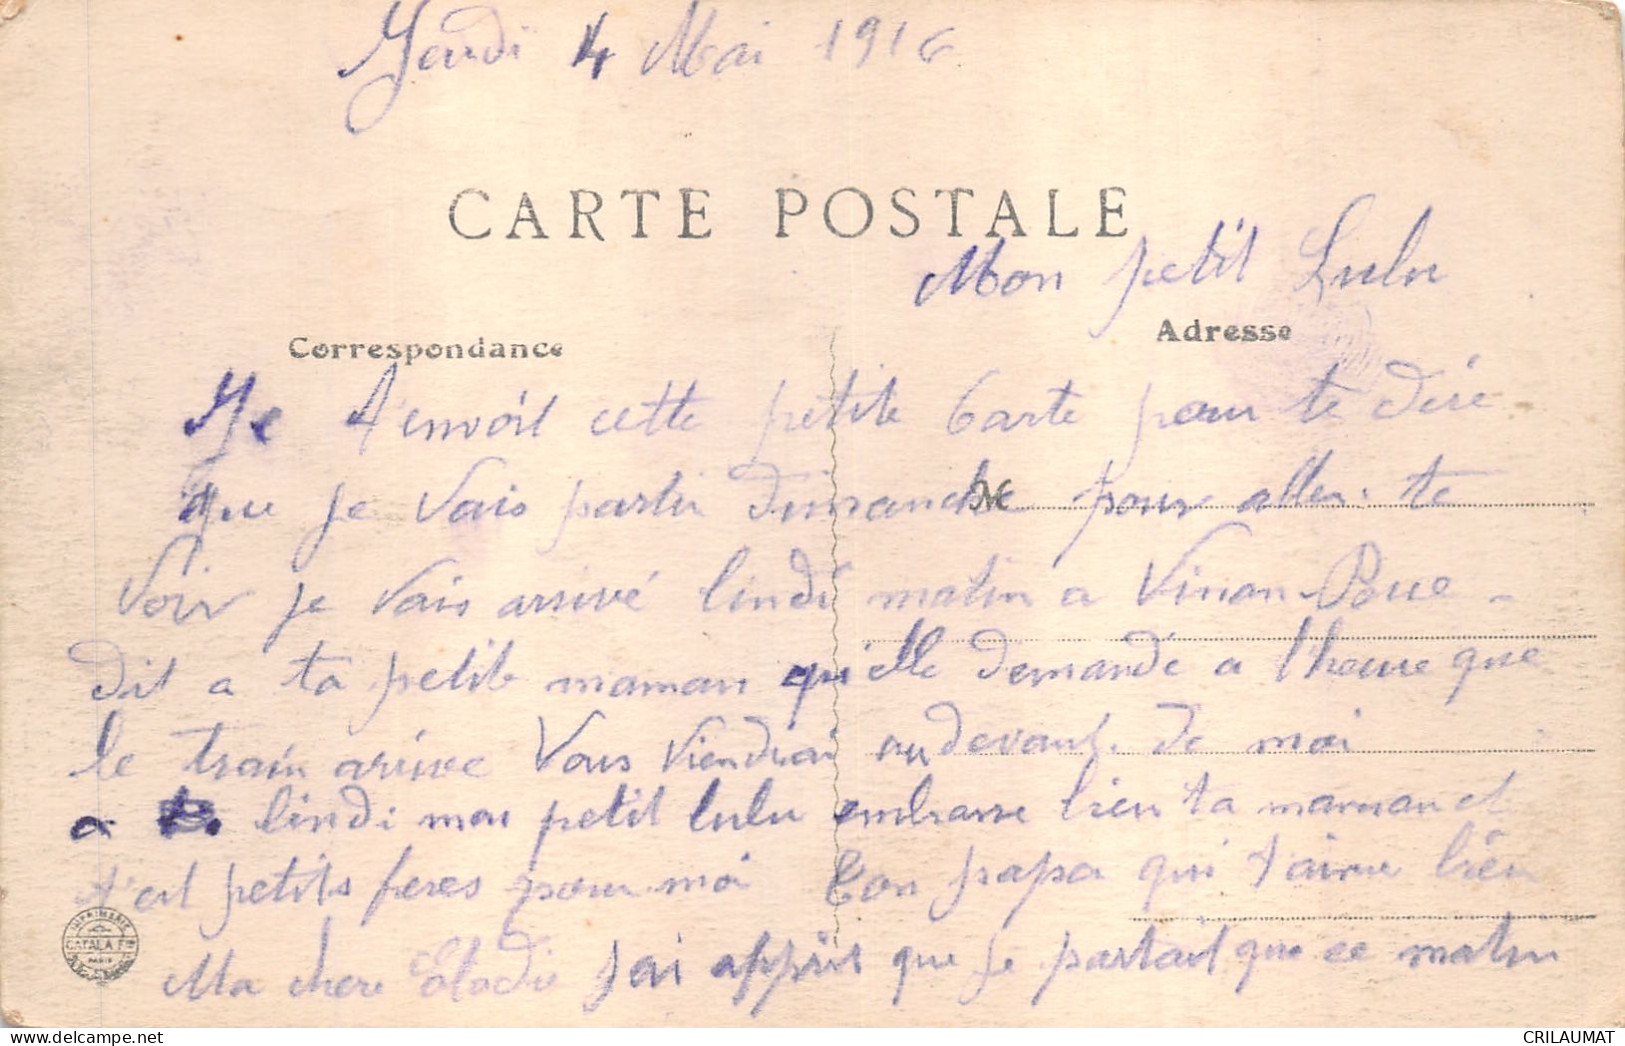 Jeudi 4 Mai 1916
CARTE POSTALE
Mon petit Lulu
Correspondance
Adresse
Je t'envoil cette petite Carte pour te dire
que je vais partir dimanche pour aller te
voir je vais arrivé lindi matin a Vinon
dit a ta petite maman qu'elle demandé a l'heure que
le train arrive Vous viendrai au devant de moi
a lindi mon petit lulu embrasse bien ta maman et
t'est petits feres pour moi Ton papa qui t'aime bien
Ma chere Elodie J'ai appris que je partait que ce matin
IMPRIMERIE
CATALA Fres
PARIS
CRILAUMAT